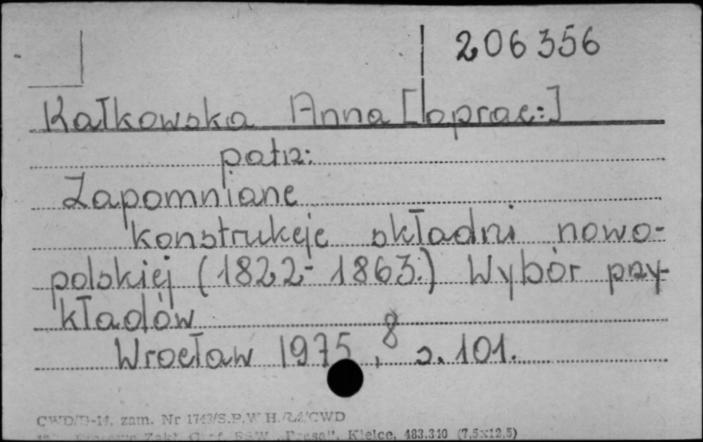 206356
Kałkowska Anna [oprac:]
patrz:
Zapomniane
konstrukcje składni nowo-
polskiej (1822-1863.) Wybór przy-
kładów
Wrocław 1975, 8 s. 101.
CWD/D-14, zam. Nr 1743/S.P.W H./ZZ/CWD
Zakł. Graf. RSW „Prasa", Kielce, 483.310 (7,5x12,5)